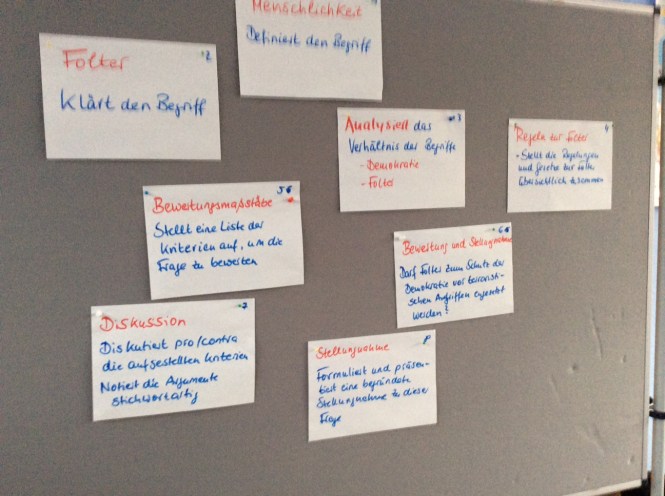 Menschlichkeit
Definiert den Begriff
Folter
2
Klärt den Begriff
3
Analysiert das
Verhältnis der Begriffe
- Demokratie
- Folter
4
Regeln zur Folter
- Stellt die Regelungen
und Gesetze zur Folter
übersichtlich zusammen
5
Bewertungsmaßstäbe
Stellt eine Liste der
Kriterien auf, um die
Frage zu bewerten
6
Bewertung und Stellungnahme
Darf Folter zum Schutz der
Demokratie vor terroristi-
schen Angriffen eingesetzt
werden?
7
Diskussion
Diskutiert pro/contra
die aufgestellten Kriterien
Notiert die Argumente
stichwortartig
8
Stellungnahme
Formuliert und präsen-
tiert eine begründete
Stellungnahme zu dieser
Frage